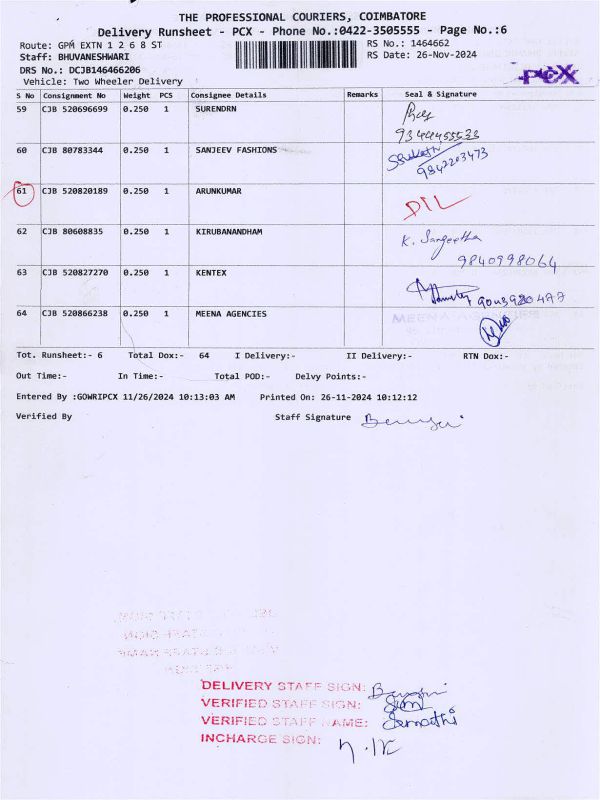 THE PROFESSIONAL COURIERS, COIMBATORE
Delivery Runsheet - PCX - Phone No.:0422-3505555 - Page No.:6
Route: GPM EXTN 1 2 6 8 ST
RS No.: 1464662
Staff: BHUVANESHWARI
RS Date: 26-Nov-2024
DRS No.: DCJB146466206
PCX
Vehicle: Two Wheeler Delivery
S No Consignment No Weight PCS Consignee Details Remarks Seal & Signature
59 CJB 520696699 0.250 1 SURENDRN
9344455533
60 CJB 80783344 0.250 1 SANJEEV FASHIONS
9842203473
61 CJB 520820189 0.250 1 ARUNKUMAR
DIL
62 CJB 80608835 0.250 1 KIRUBANANDHAM K. Sangeetha
9840998064
63 CJB 520827270 0.250 1 KENTEX
64 CJB 520866238 0.250 1 MEENA AGENCIES
MEENA
Tot. Runsheet:- 6 Total Dox:- 64 I Delivery:- II Delivery:- RTN Dox:-
Out Time:- In Time:- Total POD:- Delvy Points:-
Entered By :GOWRIPCX 11/26/2024 10:13:03 AM Printed On: 26-11-2024 10:12:12
Verified By Staff Signature
DELIVERY STAFF SIGN:
VERIFIED STAFF SIGN:
VERIFIED STAFF NAME: Sumathi
INCHARGE SIGN: